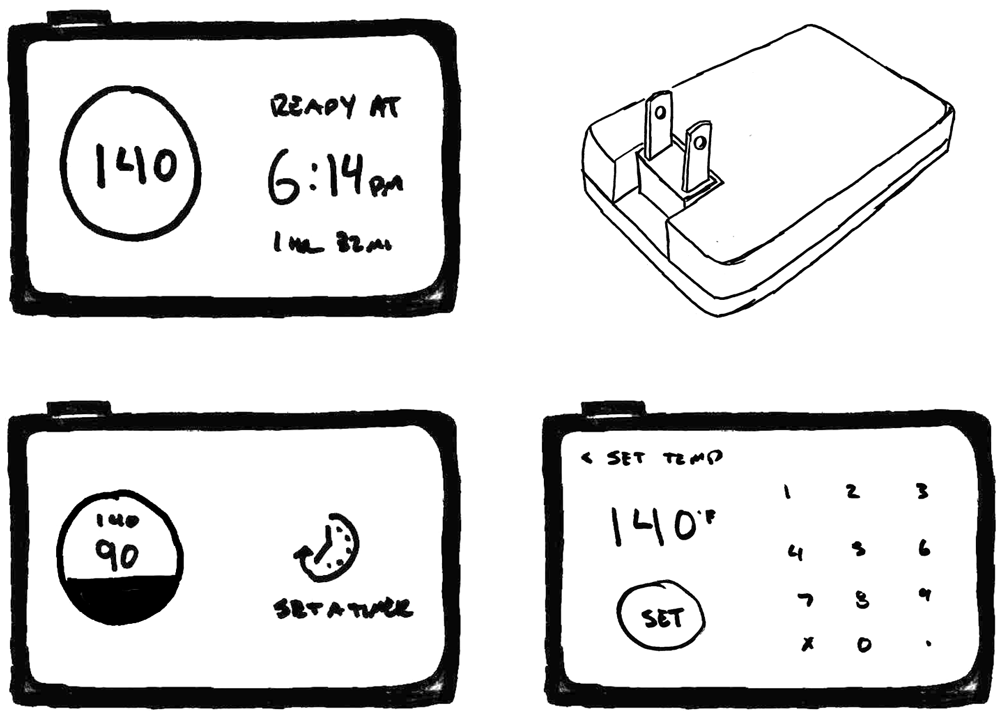 140
READY AT
6:14 PM
1 HR 32 MI
140
90
SET A TIMER
< SET TEMP
140°F
SET
1 2 3
4 5 6
7 8 9
X 0 .